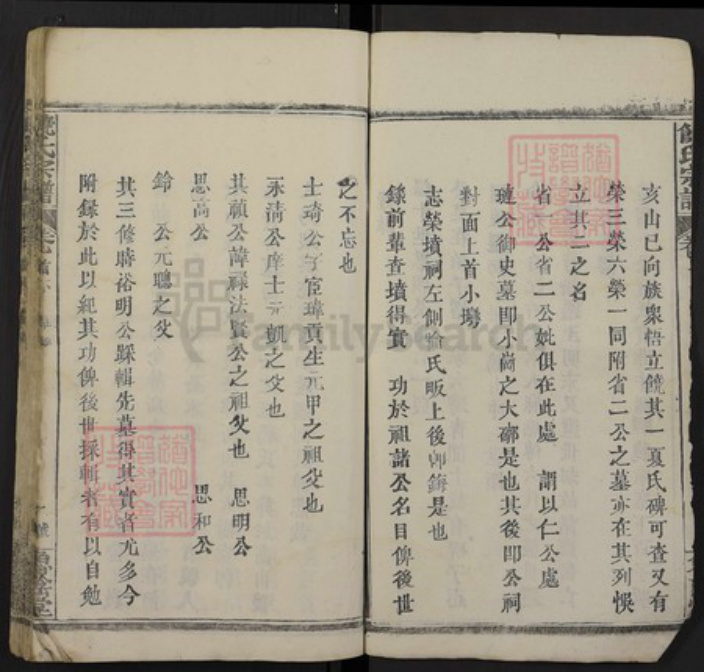 亥山巳向族衆悟立饒其一夏氏碑可查又有
榮三榮六榮一同附省二公之墓亦在其列悞
立其二之名
省一公省二公妣俱在此處 謂以仁公處
璉公御史墓即小崗之大廓是也其後即公祠
對面上首小塆
志榮墳祠左側喻氏畈上後卽是也
錄前輩查墳得實 功於祖諸公名目俾後世
之不忘也
士琦公字宦瑋貢生元甲之祖父也
永清公庠士元凱之父也
其禎公諱祿法賢公之祖父也 思明公
思高公 思和公
鈴 公元聰之父
其三脩時裕明公踩輯先墓得其實者尤多今
附錄於此以紀其功俾後世採輯者有以自勉
饒氏宗譜
FamilySearch